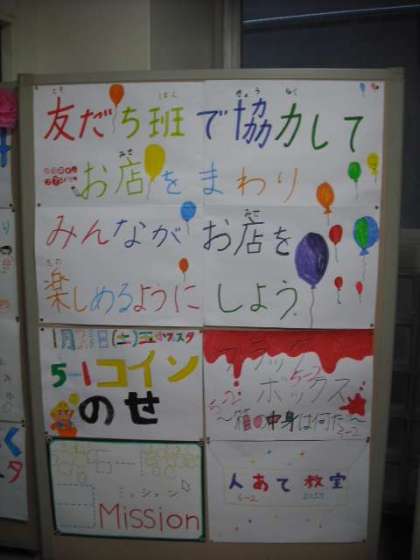 友だち班で協力して
お店をまわり
みんながお店を
楽しめるようにしよう
5-1コイン
のせ
ブラック
ボックス
5-2
～箱の中身は何だ～
ミッション
Mission
人あて教室